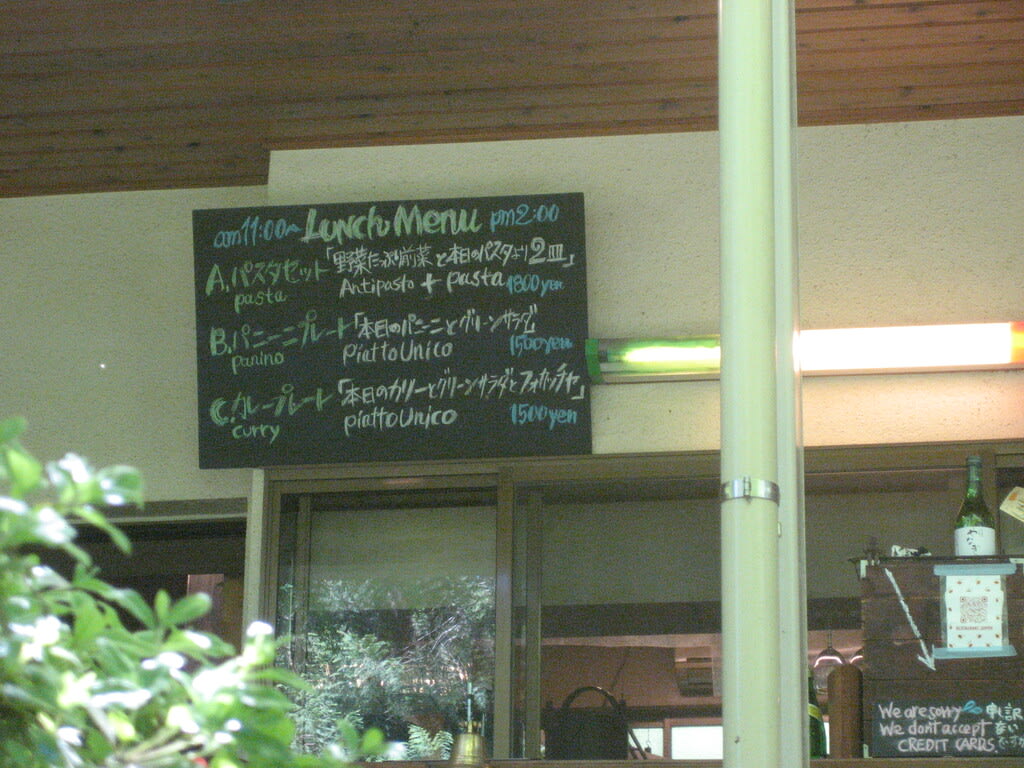 am11:00~ Lunch Menu pm2:00
A.パスタセット「野菜たっぷり前菜と本日のパスタより2皿」
pasta Antipasto + pasta 1800yen
B.パニーニプレート「本日のパニーニとグリーンサラダ」
panino piatto Unico 1500yen
C.カレープレート「本日のカリーとグリーンサラダとフォカッチャ」
curry piatto Unico 1500yen
We are sorry
We don't accept
CREDIT CARDS.